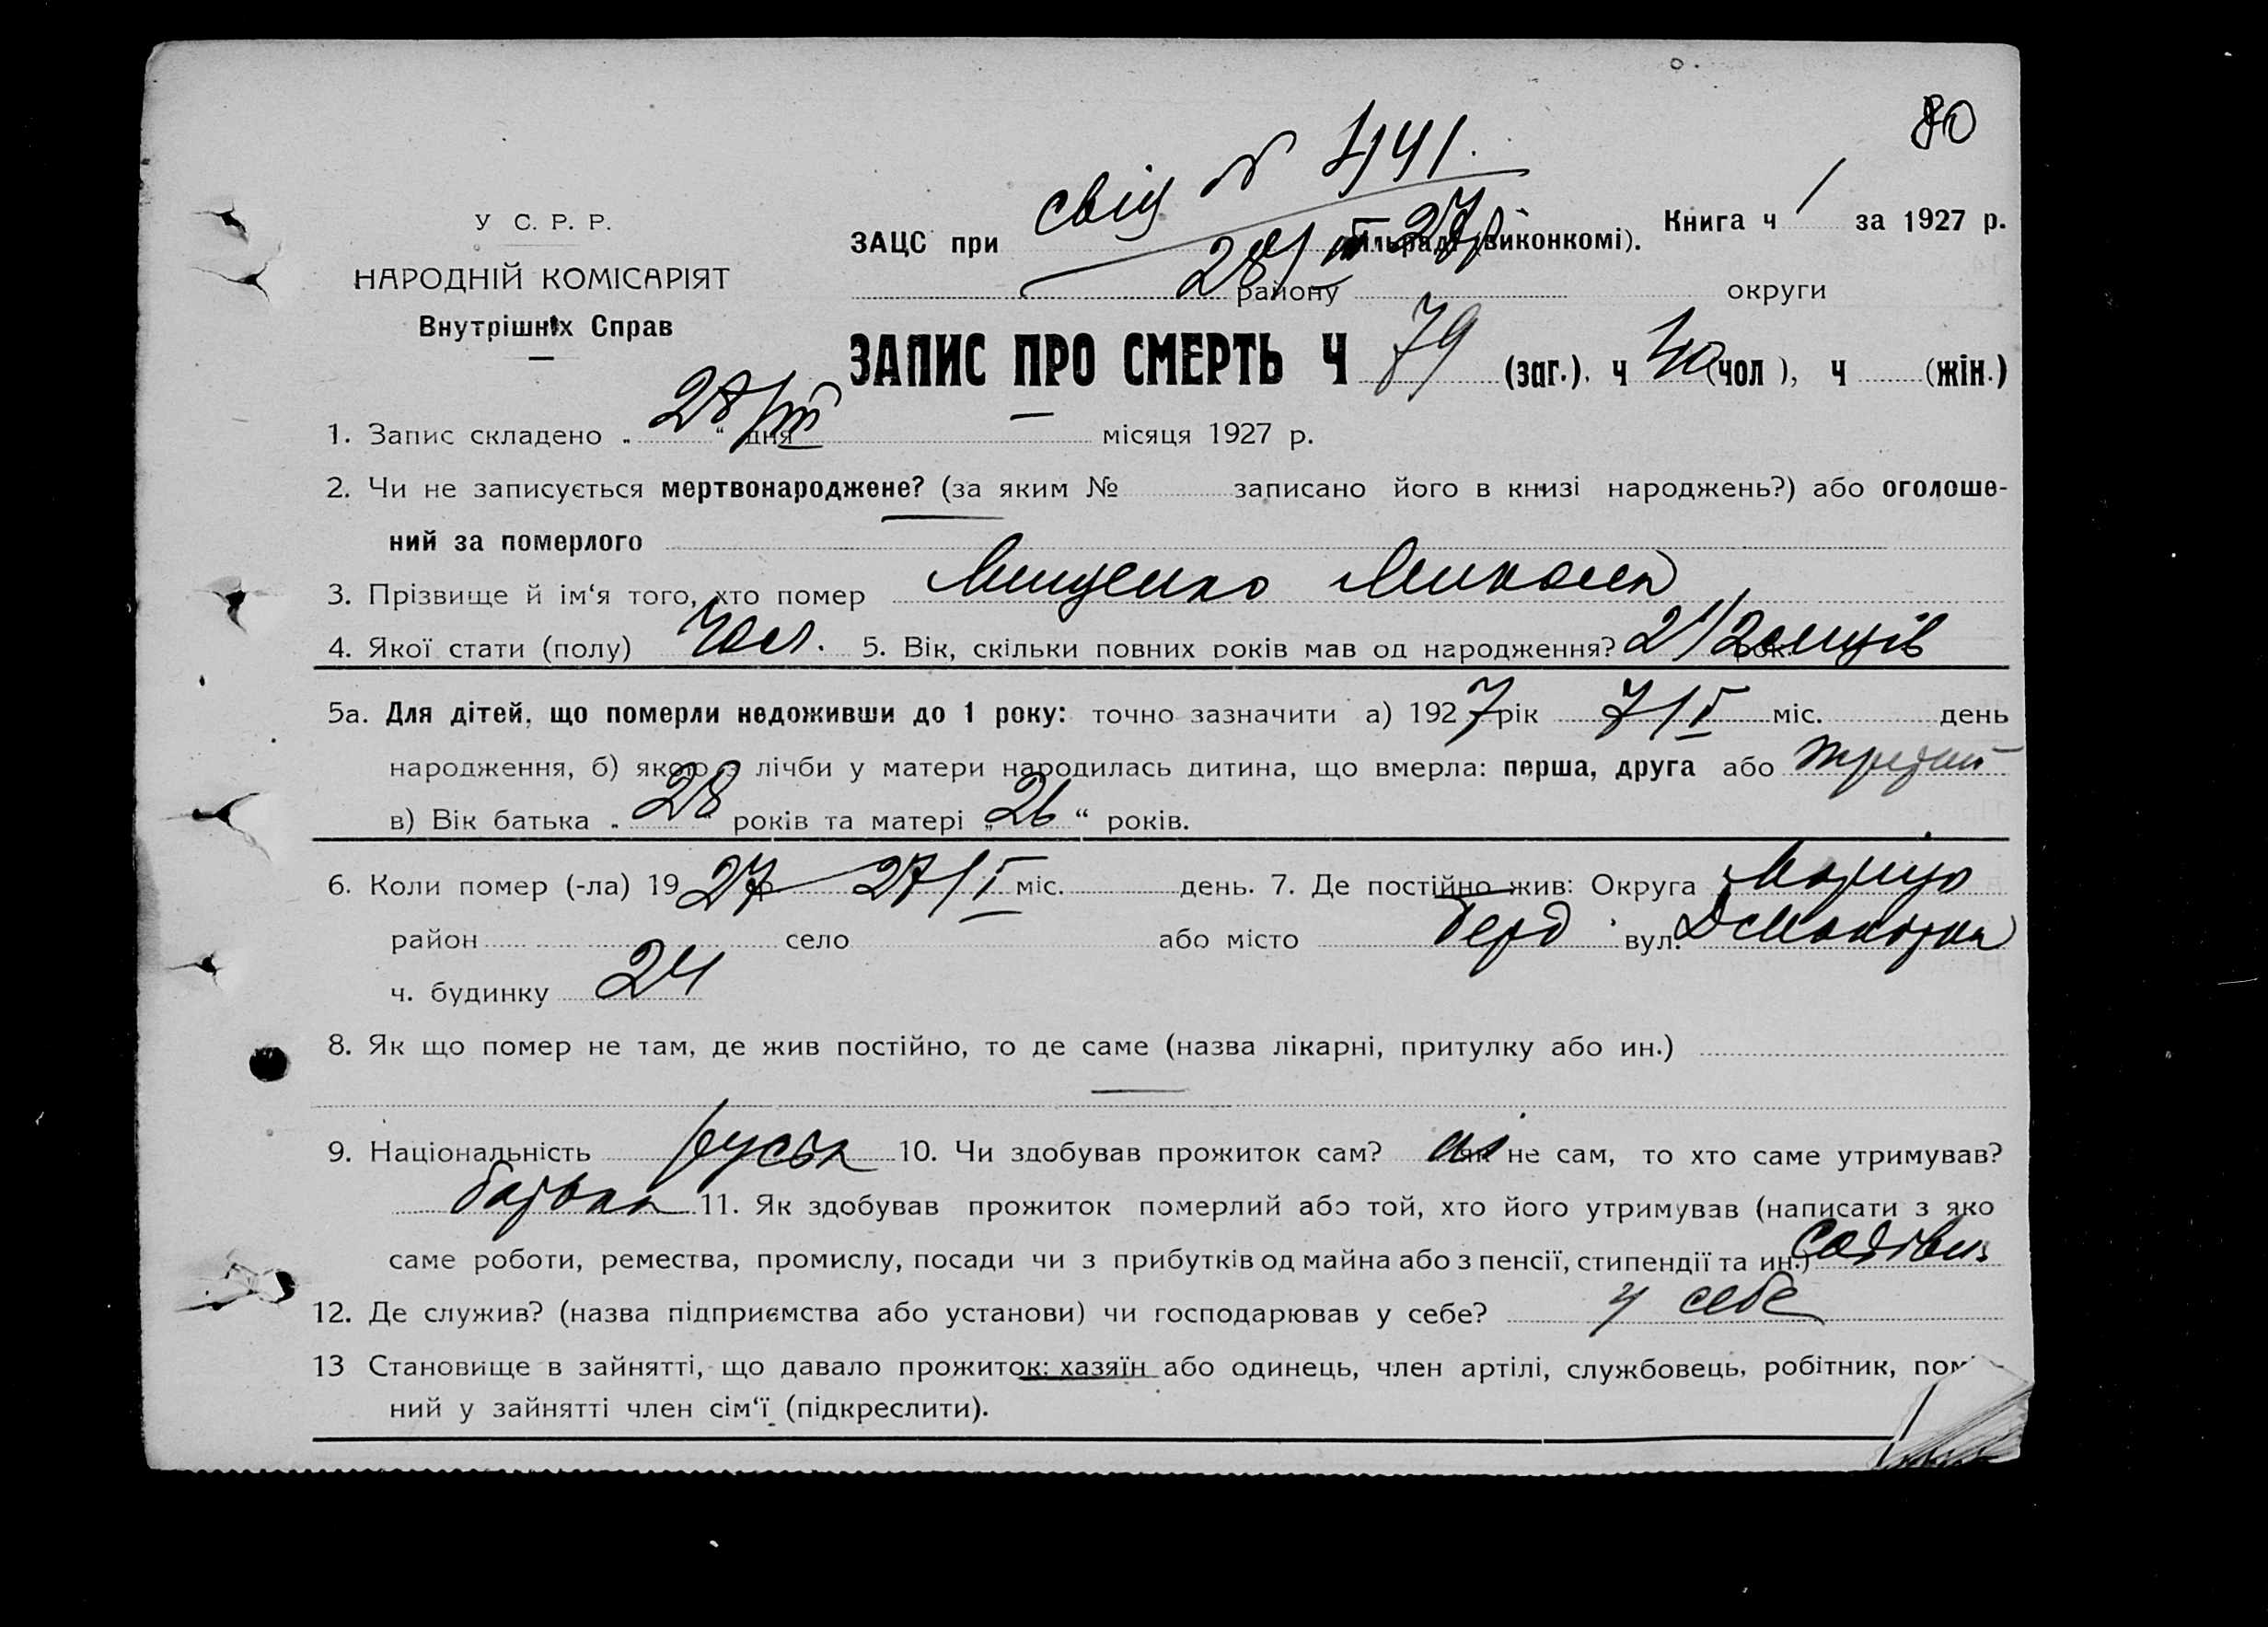 80
свід № 441.
У С. Р. Р.
НАРОДНІЙ КОМІСАРІЯТ
Внутрішніх Справ
ЗАЦС при (виконкомі). Книга ч 1 за 1927 р.
28/III 27р району округи
ЗАПИС ПРО СМЕРТЬ Ч 79 (заг.). ч 40 (чол ), ч (жін.)
1. Запис складено „ 28/III “ дня місяця 1927 р.
2. Чи не записується мертвонароджене? (за яким № записано його в книзі народжень?) або оголоше-
ний за померлого
3. Прізвище й ім‘я того, хто помер Мищенко Микола
4. Якої стати (полу) Чол. 5. Вік, скільки повних років мав од народження? 2 1/2 місців
5а. Для дітей, що померли недоживши до 1 року: точно зазначити а) 1927 рік 7/I міс. день
народження, б) якою з лічби у матери народилась дитина, що вмерла: перша, друга або третий
в) Вік батька „ 28 “ років та матері „ 26 “ років.
6. Коли помер (-ла) 19 27 р 27/I міс. день. 7. Де постійно жив: Округа
район село або місто Берд вул.
ч. будинку 24
8. Як що помер не там, де жив постійно, то де саме (назва лікарні, притулку або ин.)
9. Національність руськ 10. Чи здобував прожиток сам? як не сам, то хто саме утримував?
батько 11. Як здобував прожиток померлий або той, хто його утримував (написати з яко
саме роботи, ремества, промислу, посади чи з прибутків од майна або з пенсії, стипендії та ин.)
12. Де служив? (назва підприємства або установи) чи господарював у себе? у себе
13 Становище в зайнятті, що давало прожиток: хазяїн або одинець, член артілі, службовець, робітник,
ний у зайнятті член сім‘ї (підкреслити).